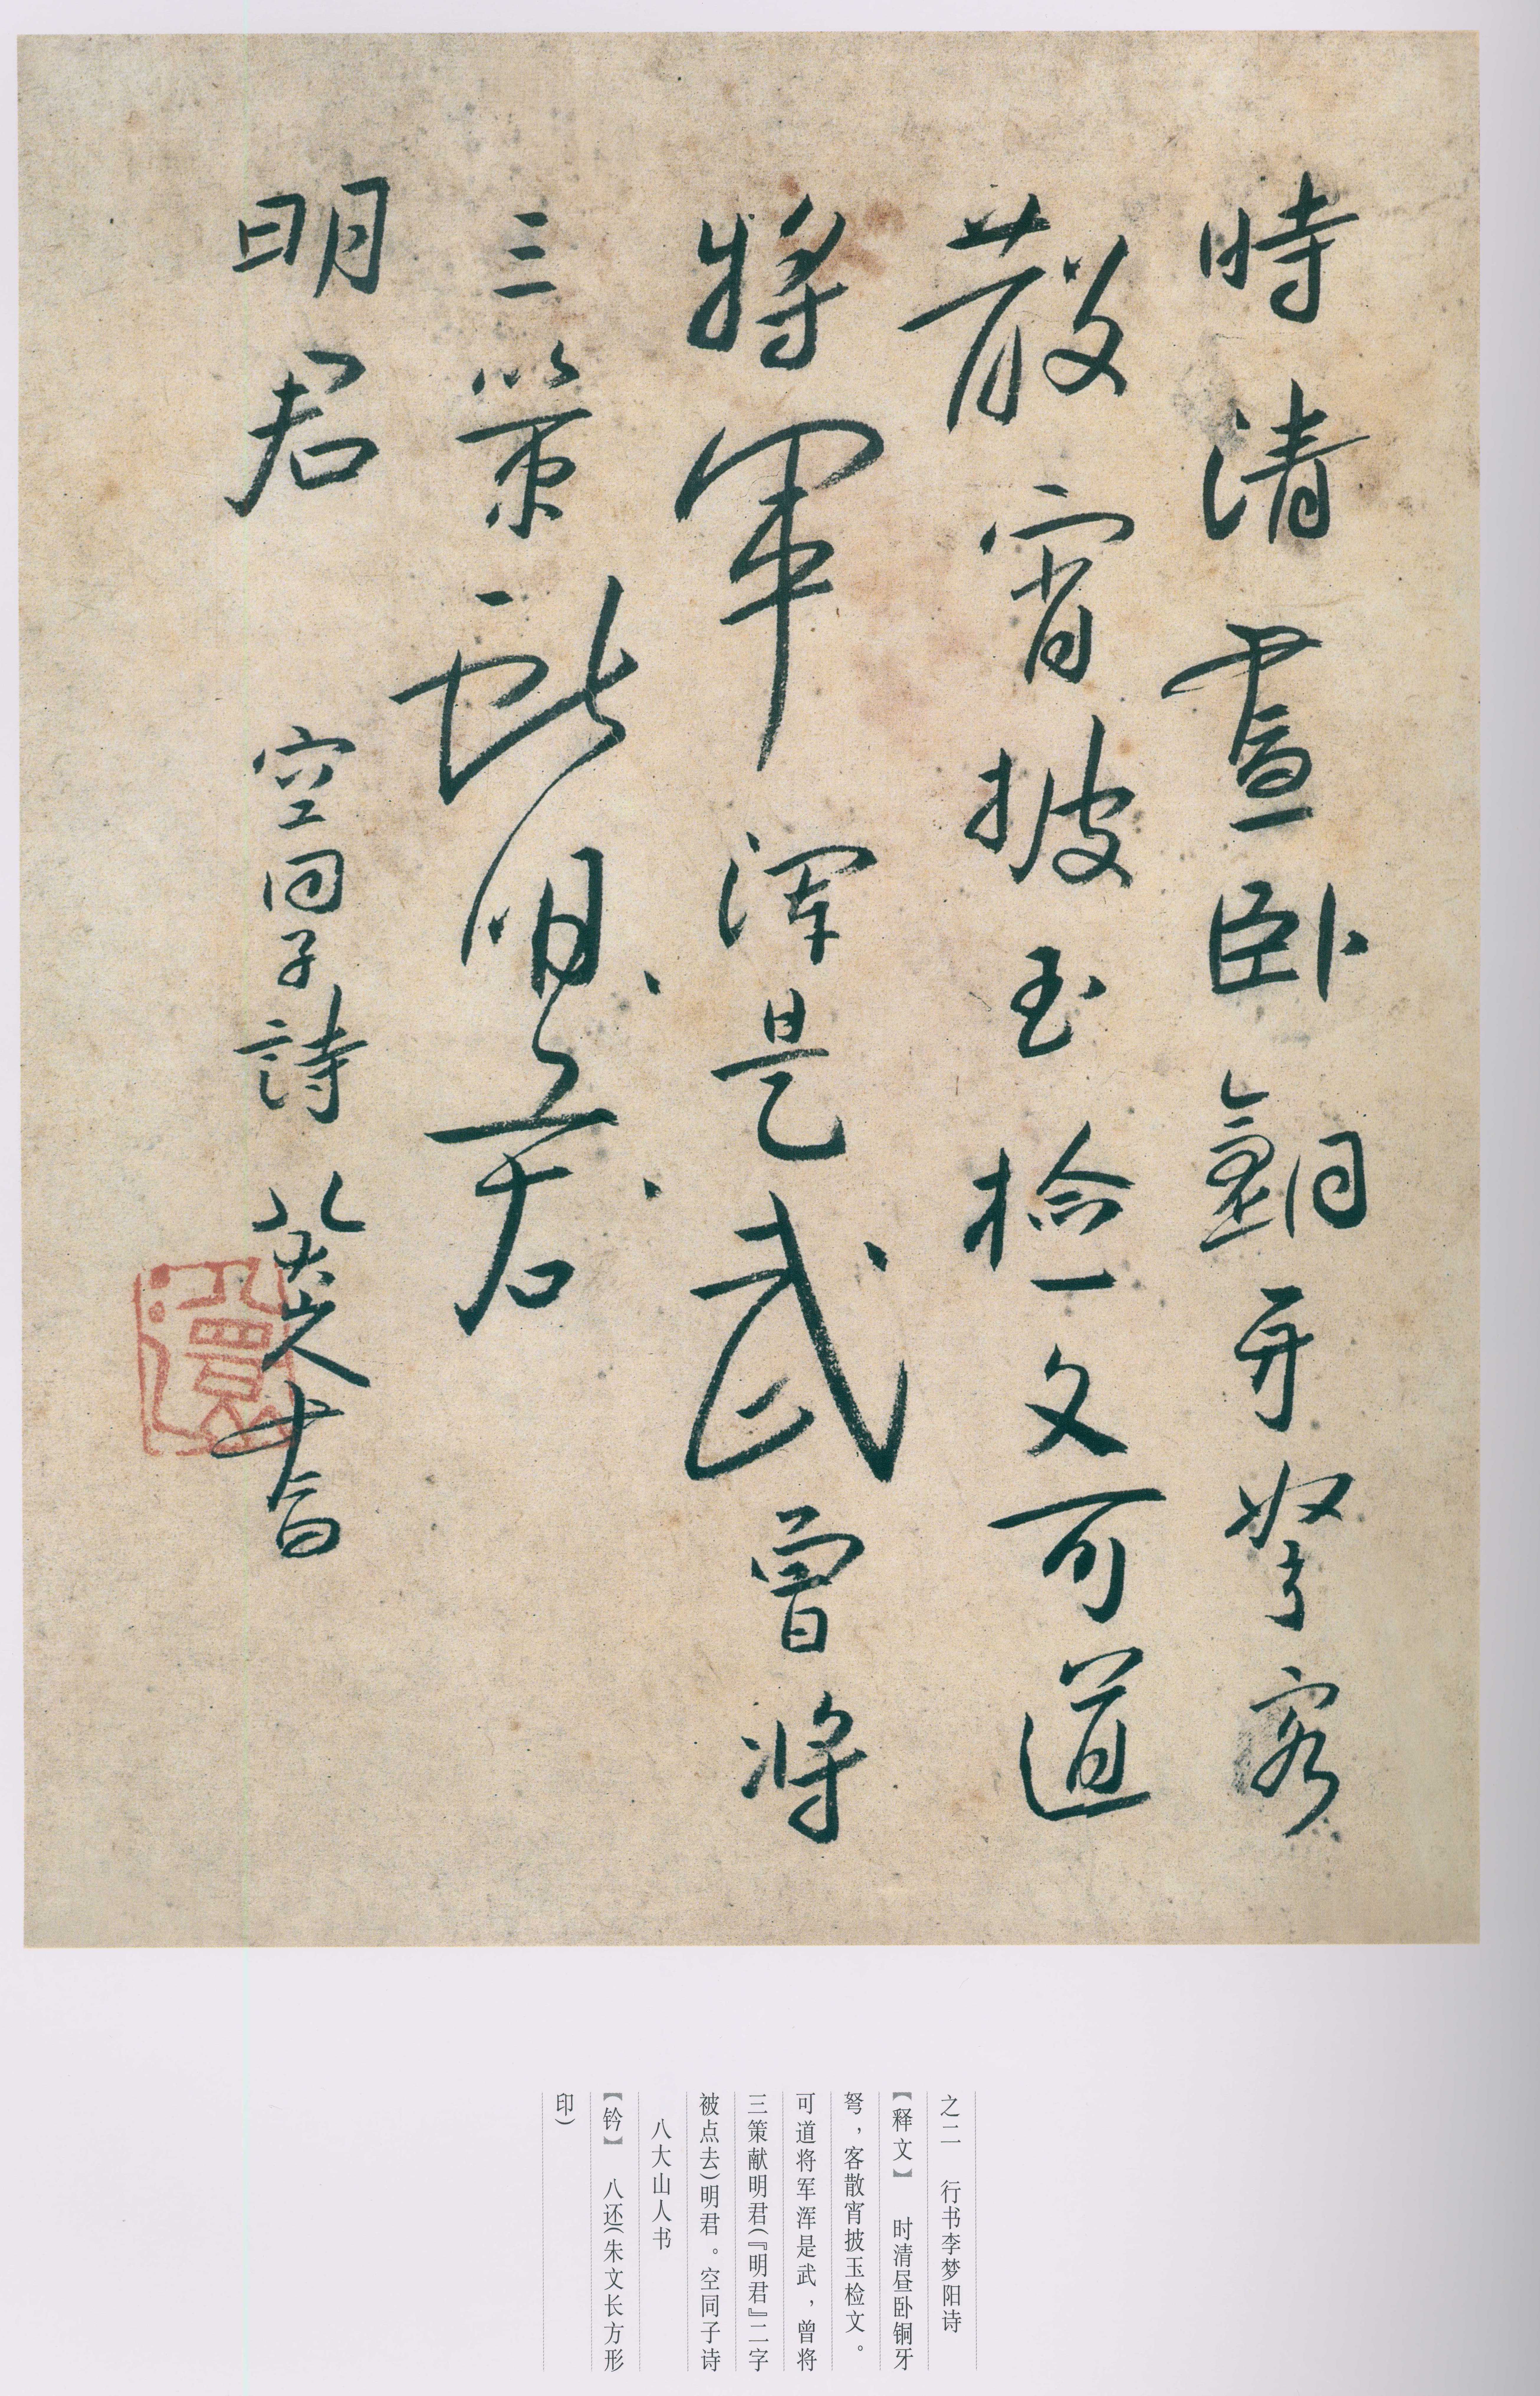 時清晝卧銅牙弩客
散宵披玉檢文可道
將軍渾是武曾將
三策獻明君
明君
空同子詩
八大山人書
之二 行书李梦阳诗
【释文】 时清昼卧铜牙
弩，客散宵披玉检文。
可道将军浑是武，曾将
三策献明君(『明君』二字
被点去)明君。空同子诗
八大山人书
【钤】 八还(朱文长方形
印)